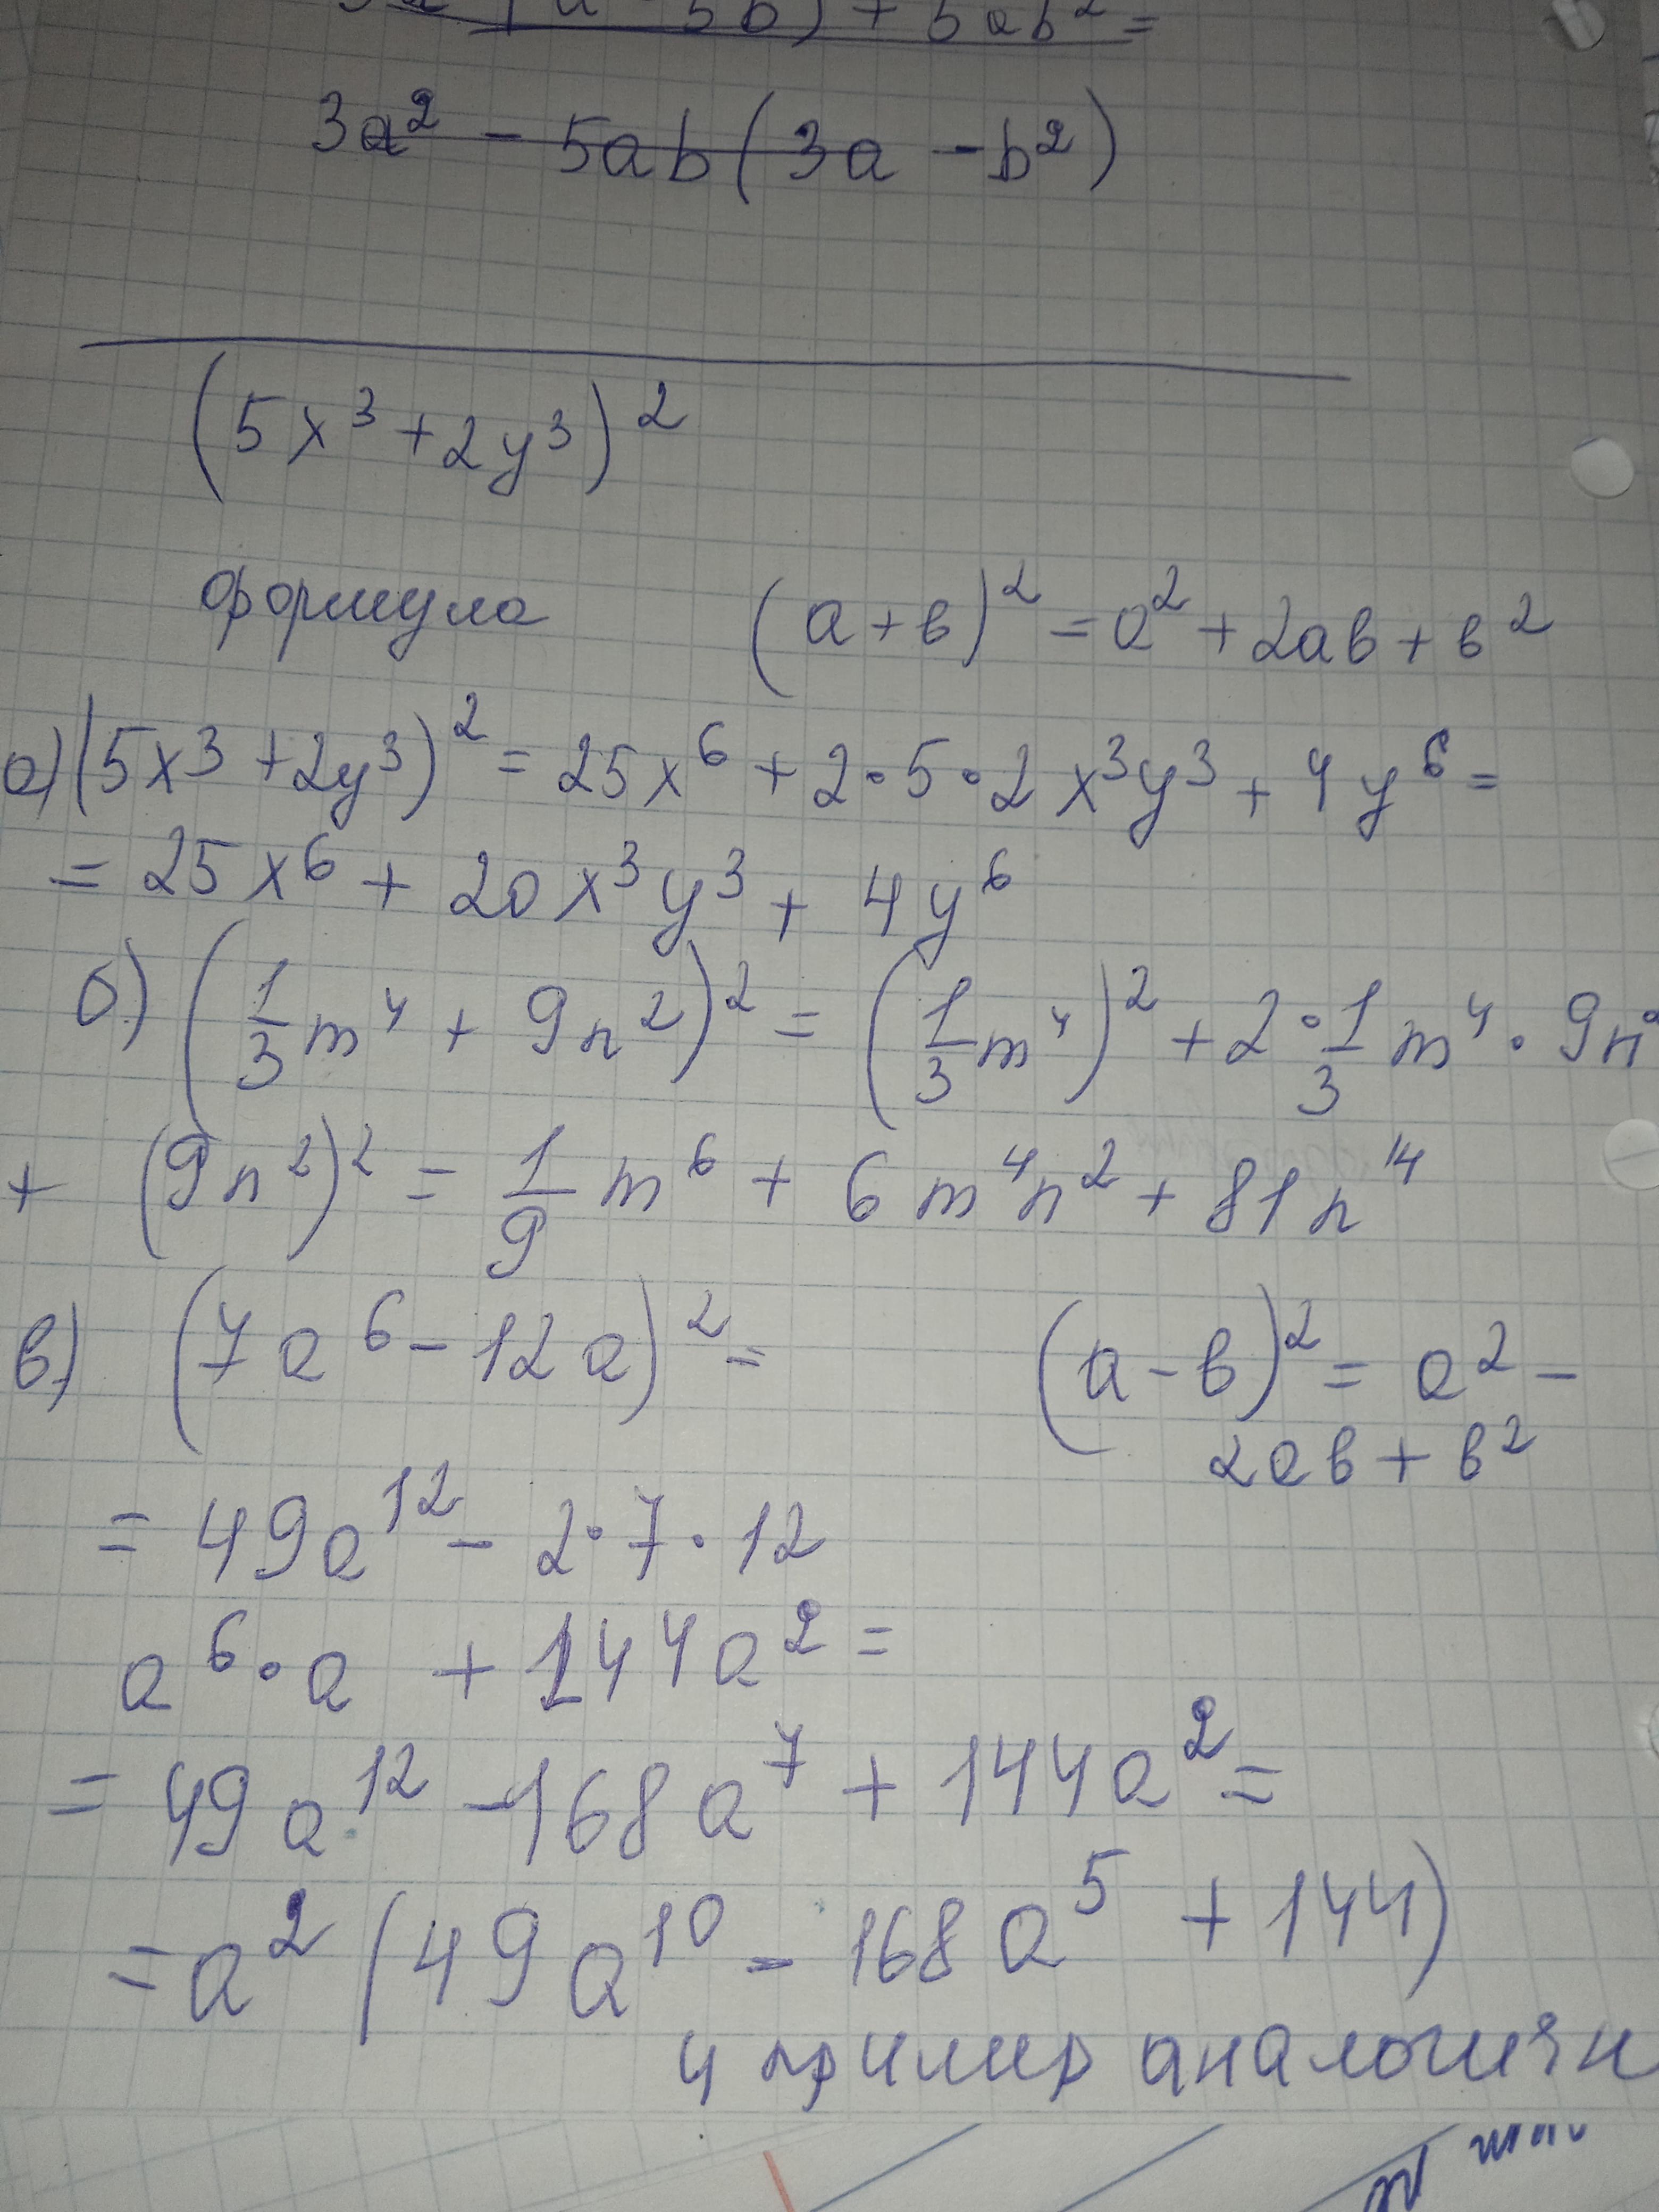 (a - 5b) + 5ab² =
3a² - 5ab(3a - b²)
(5x³ + 2y³)²
формула (a + в)² = a² + 2aв + в²
а) (5x³ + 2y³)² = 25x⁶ + 2·5·2 x³y³ + 4y⁶ =
= 25x⁶ + 20x³y³ + 4y⁶
б) (1/3 m⁴ + 9n²)² = (1/3 m⁴)² + 2·1/3 m⁴ · 9n²
+ (9n²)² = 1/9 m⁶ + 6m⁴n² + 81n¹⁴
в) (7a⁶ - 12a)² = (a - в)² = a² -
2aв + в²
= 49a¹² - 2·7·12
a⁶·a + 144a² =
= 49a¹² - 168a⁷ + 144a² =
= a² (49a¹⁰ - 168a⁵ + 144)
4 пример аналогичн